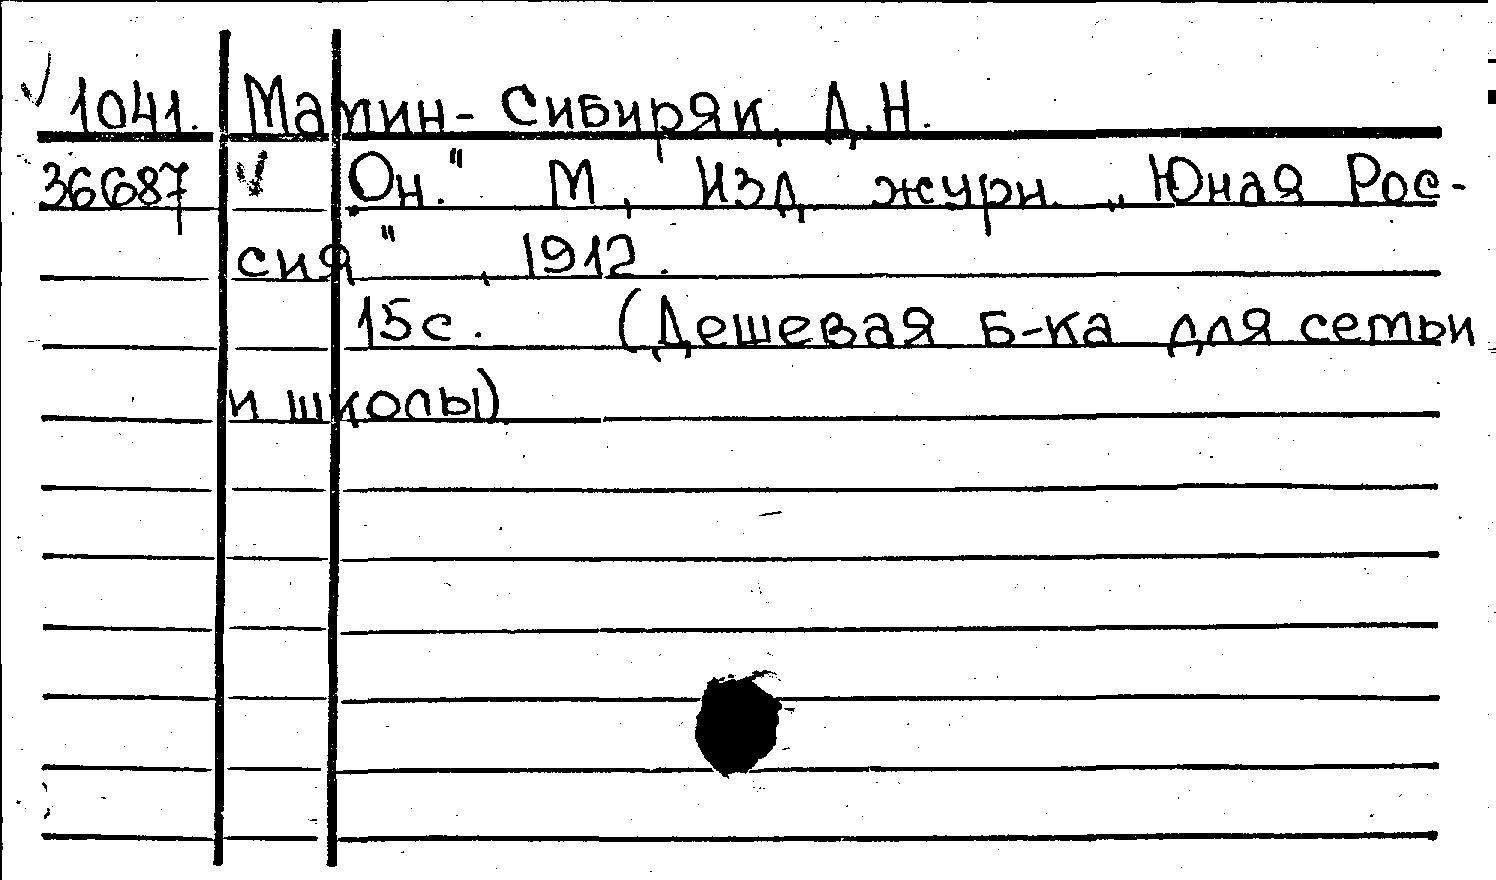 1041. Мамин-Сибиряк, Д.Н.
36687 Он." М, Изд. журн. „Юная Рос-
сия", 1912.
15с. (Дешевая б-ка для семьи
и школы)